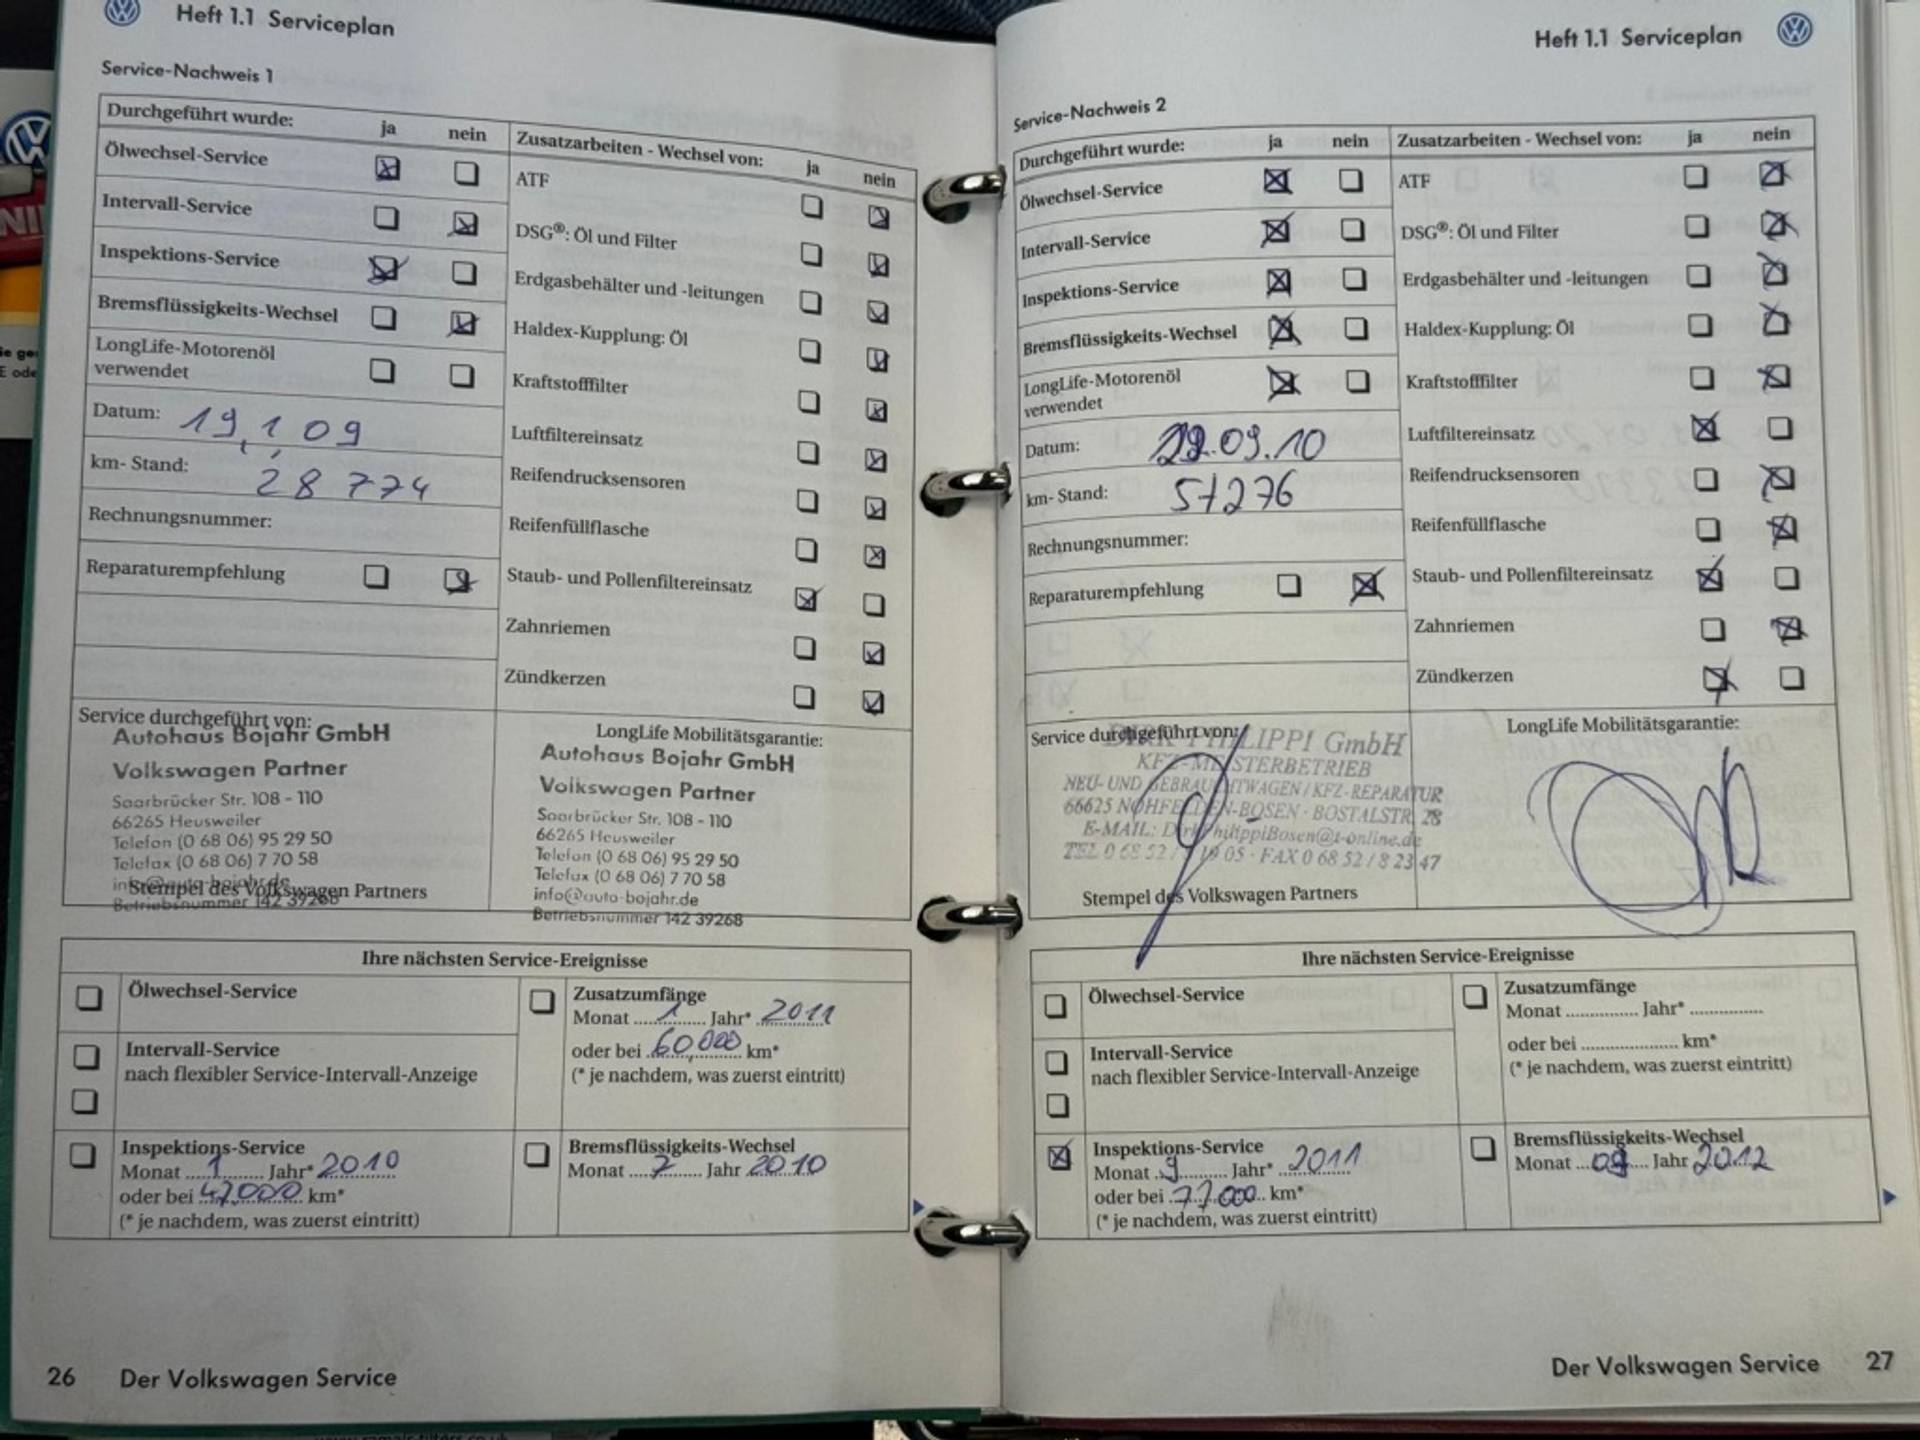 Heft 1.1 Serviceplan
Service-Nachweis 1
Durchgeführt wurde: ja nein
Ölwechsel-Service
Intervall-Service
Inspektions-Service
Bremsflüssigkeits-Wechsel
LongLife-Motorenöl
verwendet
Datum: 19.1.09
km- Stand: 28 774
Rechnungsnummer:
Reparaturempfehlung
Zusatzarbeiten - Wechsel von: ja nein
ATF
DSG®: Öl und Filter
Erdgasbehälter und -leitungen
Haldex-Kupplung: Öl
Kraftstofffilter
Luftfiltereinsatz
Reifendrucksensoren
Reifenfüllflasche
Staub- und Pollenfiltereinsatz
Zahnriemen
Zündkerzen
Service durchgeführt von:
Autohaus Bojahr GmbH
Volkswagen Partner
Saarbrücker Str. 108 - 110
66265 Heusweiler
Telefon (0 68 06) 95 29 50
Telefax (0 68 06) 7 70 58
info@auto-bojahr.de
Stempel des Volkswagen Partners
Betriebsnummer 142 39268
LongLife Mobilitätsgarantie:
Autohaus Bojahr GmbH
Volkswagen Partner
Saarbrücker Str. 108 - 110
66265 Heusweiler
Telefon (0 68 06) 95 29 50
Telefax (0 68 06) 7 70 58
info@auto-bojahr.de
Betriebsnummer 142 39268
Ihre nächsten Service-Ereignisse
Ölwechsel-Service
Intervall-Service
nach flexibler Service-Intervall-Anzeige
Inspektions-Service
Monat 1 Jahr* 2010
oder bei 47.000 km*
(* je nachdem, was zuerst eintritt)
Zusatzumfänge
Monat 1 Jahr* 2011
oder bei 60.000 km*
(* je nachdem, was zuerst eintritt)
Bremsflüssigkeits-Wechsel
Monat 7 Jahr 2010
26 Der Volkswagen Service
Heft 1.1 Serviceplan
Service-Nachweis 2
Durchgeführt wurde: ja nein
Ölwechsel-Service
Intervall-Service
Inspektions-Service
Bremsflüssigkeits-Wechsel
LongLife-Motorenöl
verwendet
Datum: 22.09.10
km- Stand: 57276
Rechnungsnummer:
Reparaturempfehlung
Zusatzarbeiten - Wechsel von: ja nein
ATF
DSG®: Öl und Filter
Erdgasbehälter und -leitungen
Haldex-Kupplung: Öl
Kraftstofffilter
Luftfiltereinsatz
Reifendrucksensoren
Reifenfüllflasche
Staub- und Pollenfiltereinsatz
Zahnriemen
Zündkerzen
Service durchgeführt von:
DIRK PHILIPPI GmbH
KFZ-MEISTERBETRIEB
NEU- UND GEBRAUCHTWAGEN / KFZ-REPARATUR
66625 NOHFELDEN-BOSEN · BOSTALSTR. 28
E-MAIL: DirkPhilippiBosen@t-online.de
TEL 0 68 52 / 19 05 · FAX 0 68 52 / 8 23 47
Stempel des Volkswagen Partners
LongLife Mobilitätsgarantie:
Ihre nächsten Service-Ereignisse
Ölwechsel-Service
Intervall-Service
nach flexibler Service-Intervall-Anzeige
Inspektions-Service
Monat 9 Jahr* 2011
oder bei 77.000 km*
(* je nachdem, was zuerst eintritt)
Zusatzumfänge
Monat Jahr*
oder bei km*
(* je nachdem, was zuerst eintritt)
Bremsflüssigkeits-Wechsel
Monat 09 Jahr 2012
Der Volkswagen Service 27